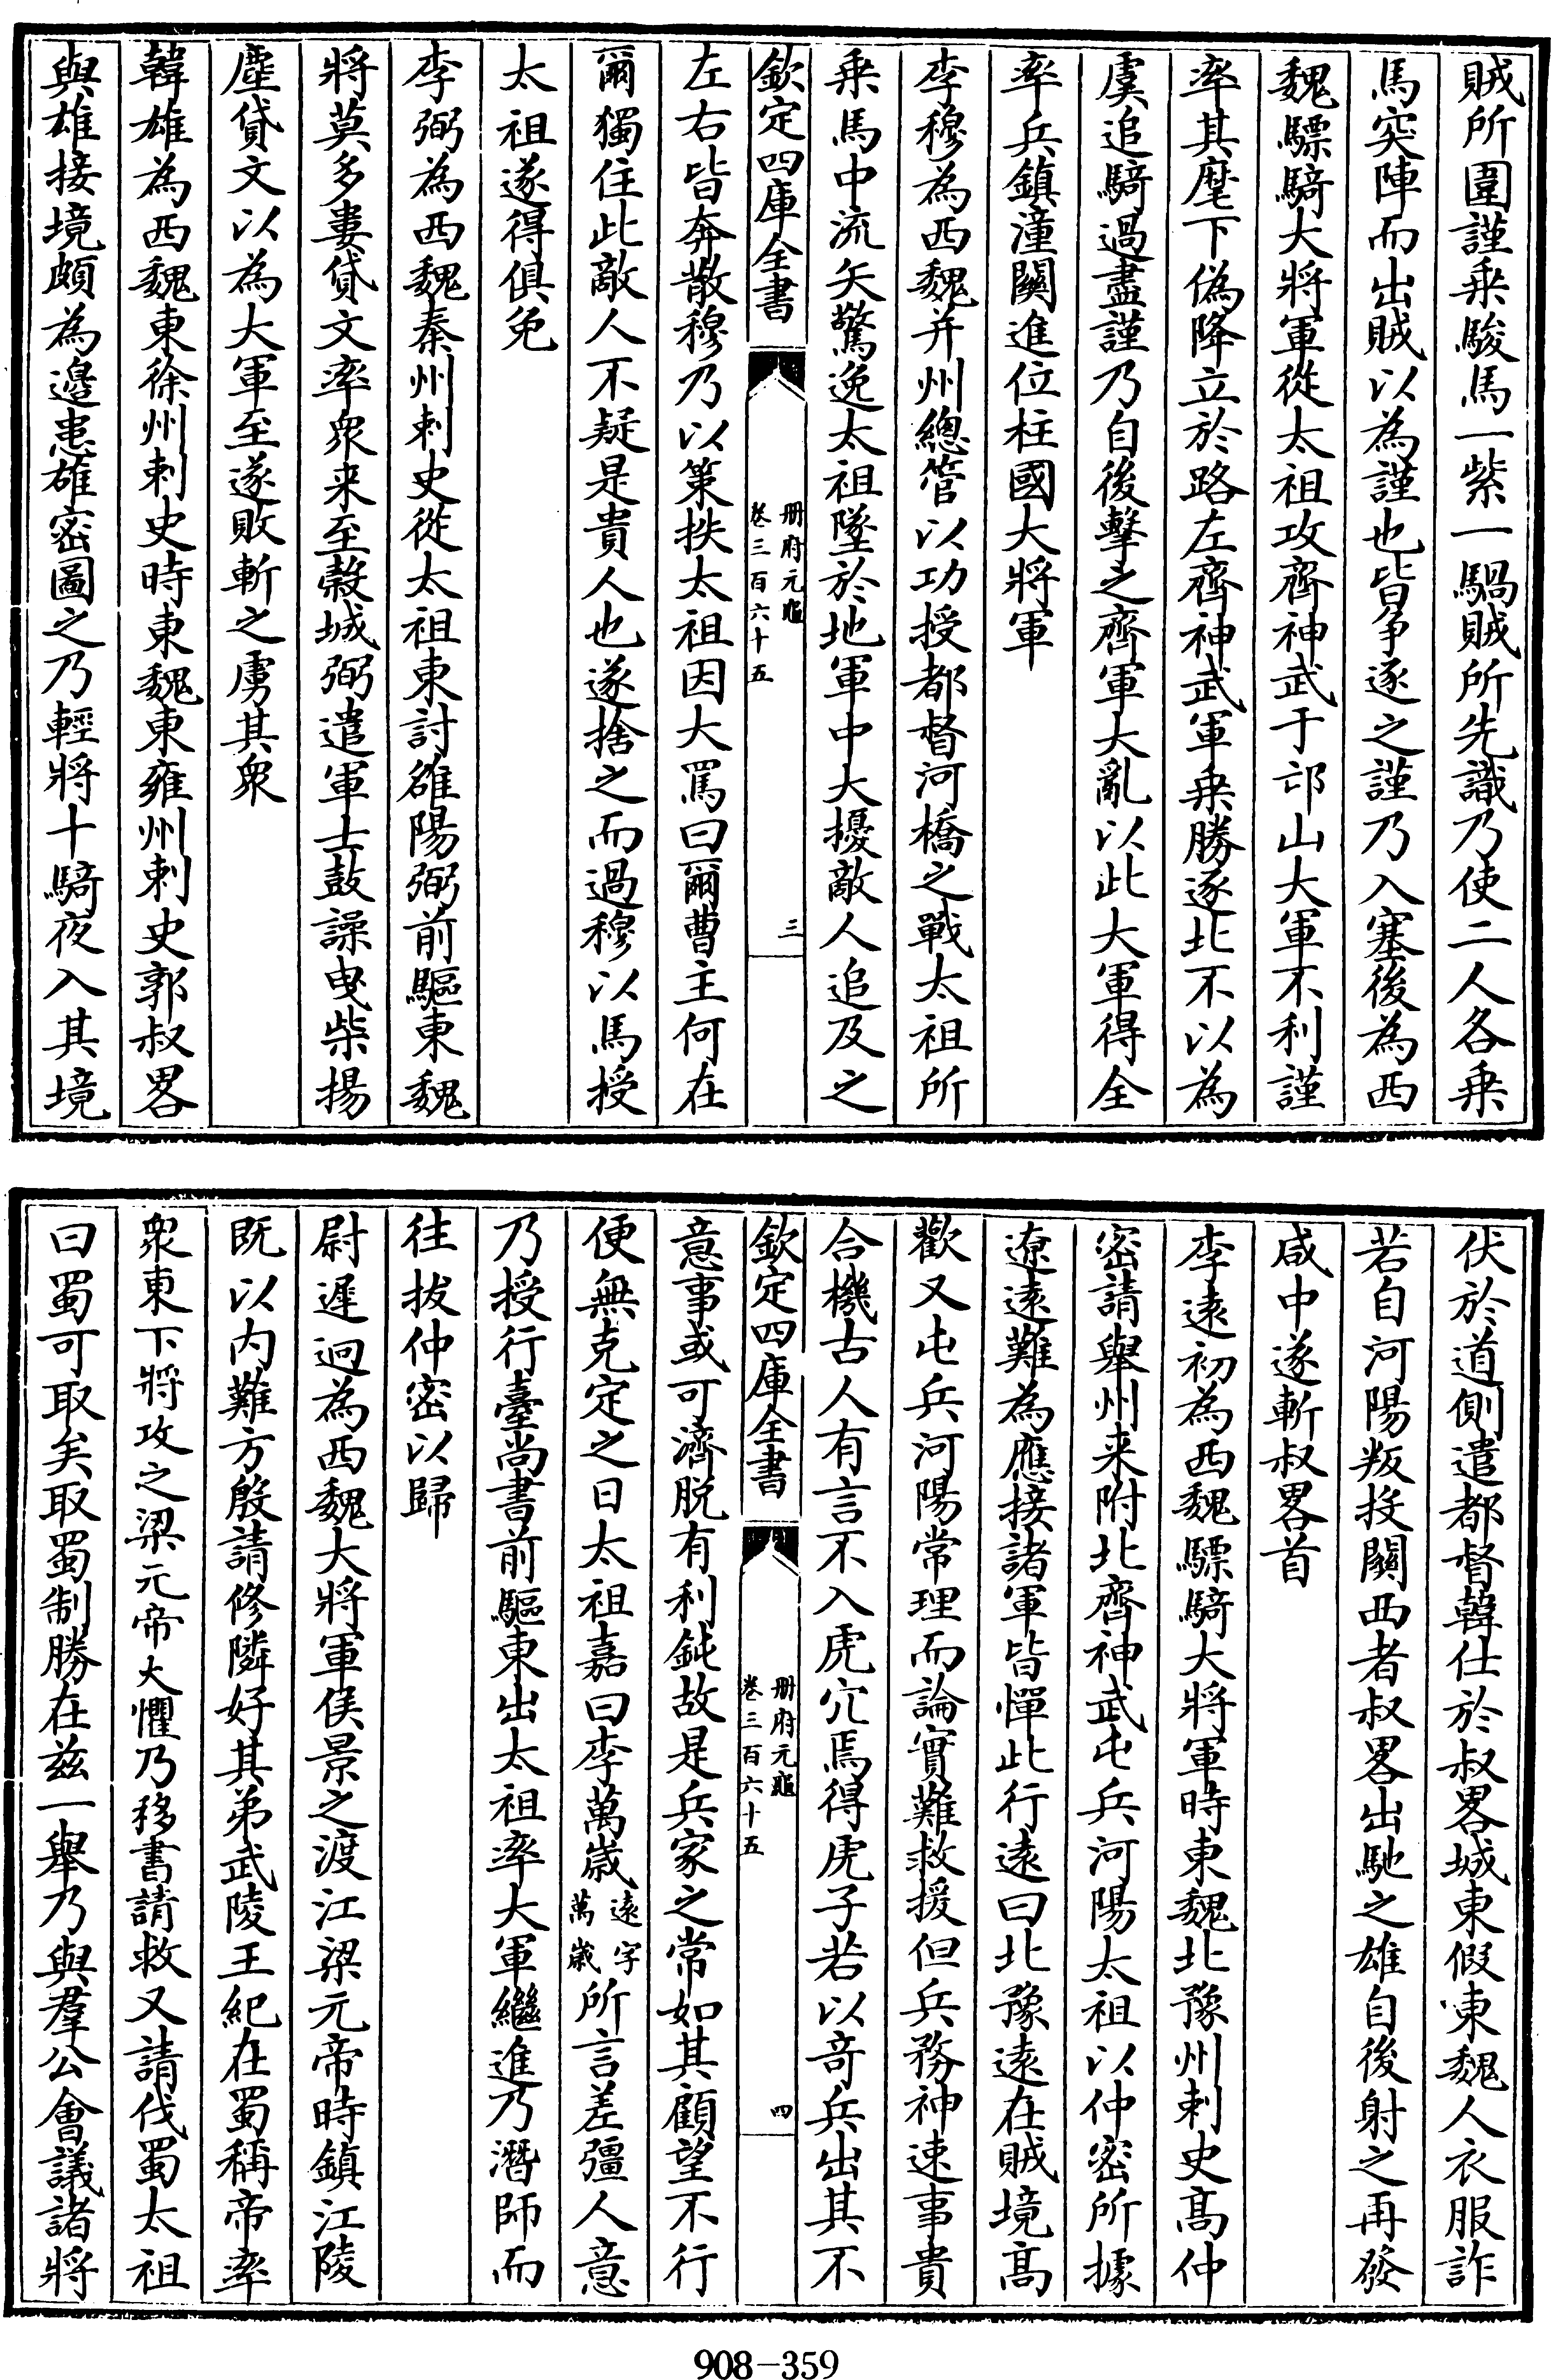 賊所圍謹乗駿馬一紫一騧賊所先識乃使二人各乗
馬突陣而出賊以為謹也皆爭逐之謹乃入塞後為西
魏驃騎大將軍從太祖攻齊神武于邙山大軍不利謹
率其麾下偽降立於路左齊神武軍乗勝逐北不以為
虞追騎過盡謹乃自後擊之齊軍大亂以此大軍得全
率兵鎮潼關進位柱國大將軍
李穆為西魏并州總管以功授都督河橋之戰太祖所
乗馬中流矢驚逸太祖墜於地軍中大擾敵人追及之
欽定四庫全書
冊府元龜
卷三百六十五
三
左右皆奔散穆乃以策抶太祖因大罵曰爾曹主何在
爾獨住此敵人不疑是貴人也遂捨之而過穆以馬授
太祖遂得俱免
李弼為西魏秦州刺史從太祖東討雒陽弼前驅東魏
將莫多婁貸文率衆来至穀城弼遣軍士鼓譟曳柴揚
塵貸文以為大軍至遂敗斬之虜其衆
韓雄為西魏東徐州刺史時東魏東雍州刺史郭叔畧
與雄接境頗為邊患雄密圖之乃輕將十騎夜入其境
伏於道側遣都督韓仕於叔畧城東假東魏人衣服詐
若自河陽叛投關西者叔畧出馳之雄自後射之再發
咸中遂斬叔畧首
李遠初為西魏驃騎大將軍時東魏北豫州刺史髙仲
密請舉州来附北齊神武屯兵河陽太祖以仲密所據
遼遠難為應接諸軍皆憚此行遠曰北豫遠在賊境髙
歡又屯兵河陽常理而論實難救援但兵務神速事貴
合機古人有言不入虎穴焉得虎子若以奇兵出其不
欽定四庫全書
冊府元龜
卷三百六十五
四
意事或可濟脱有利鈍故是兵家之常如其顧望不行
便無克定之日太祖嘉曰李萬歲遠字萬歲所言差彊人意
乃授行臺尚書前驅東出太祖率大軍繼進乃潛師而
往拔仲密以歸
尉遲迥為西魏大將軍侯景之渡江梁元帝時鎮江陵
既以内難方殷請修隣好其弟武陵王紀在蜀稱帝率
衆東下將攻之梁元帝大懼乃移書請救又請伐蜀太祖
曰蜀可取矣取蜀制勝在兹一舉乃與羣公會議諸將
908-359